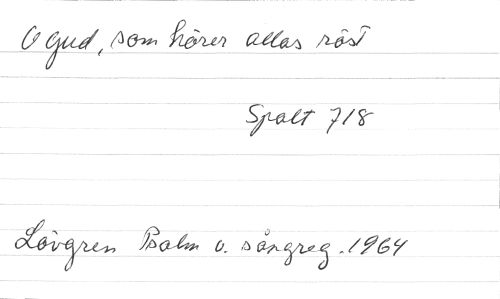 O gud, som hörer allas röst
Spalt 718
Lövgren Psalm o. sångreg. 1964